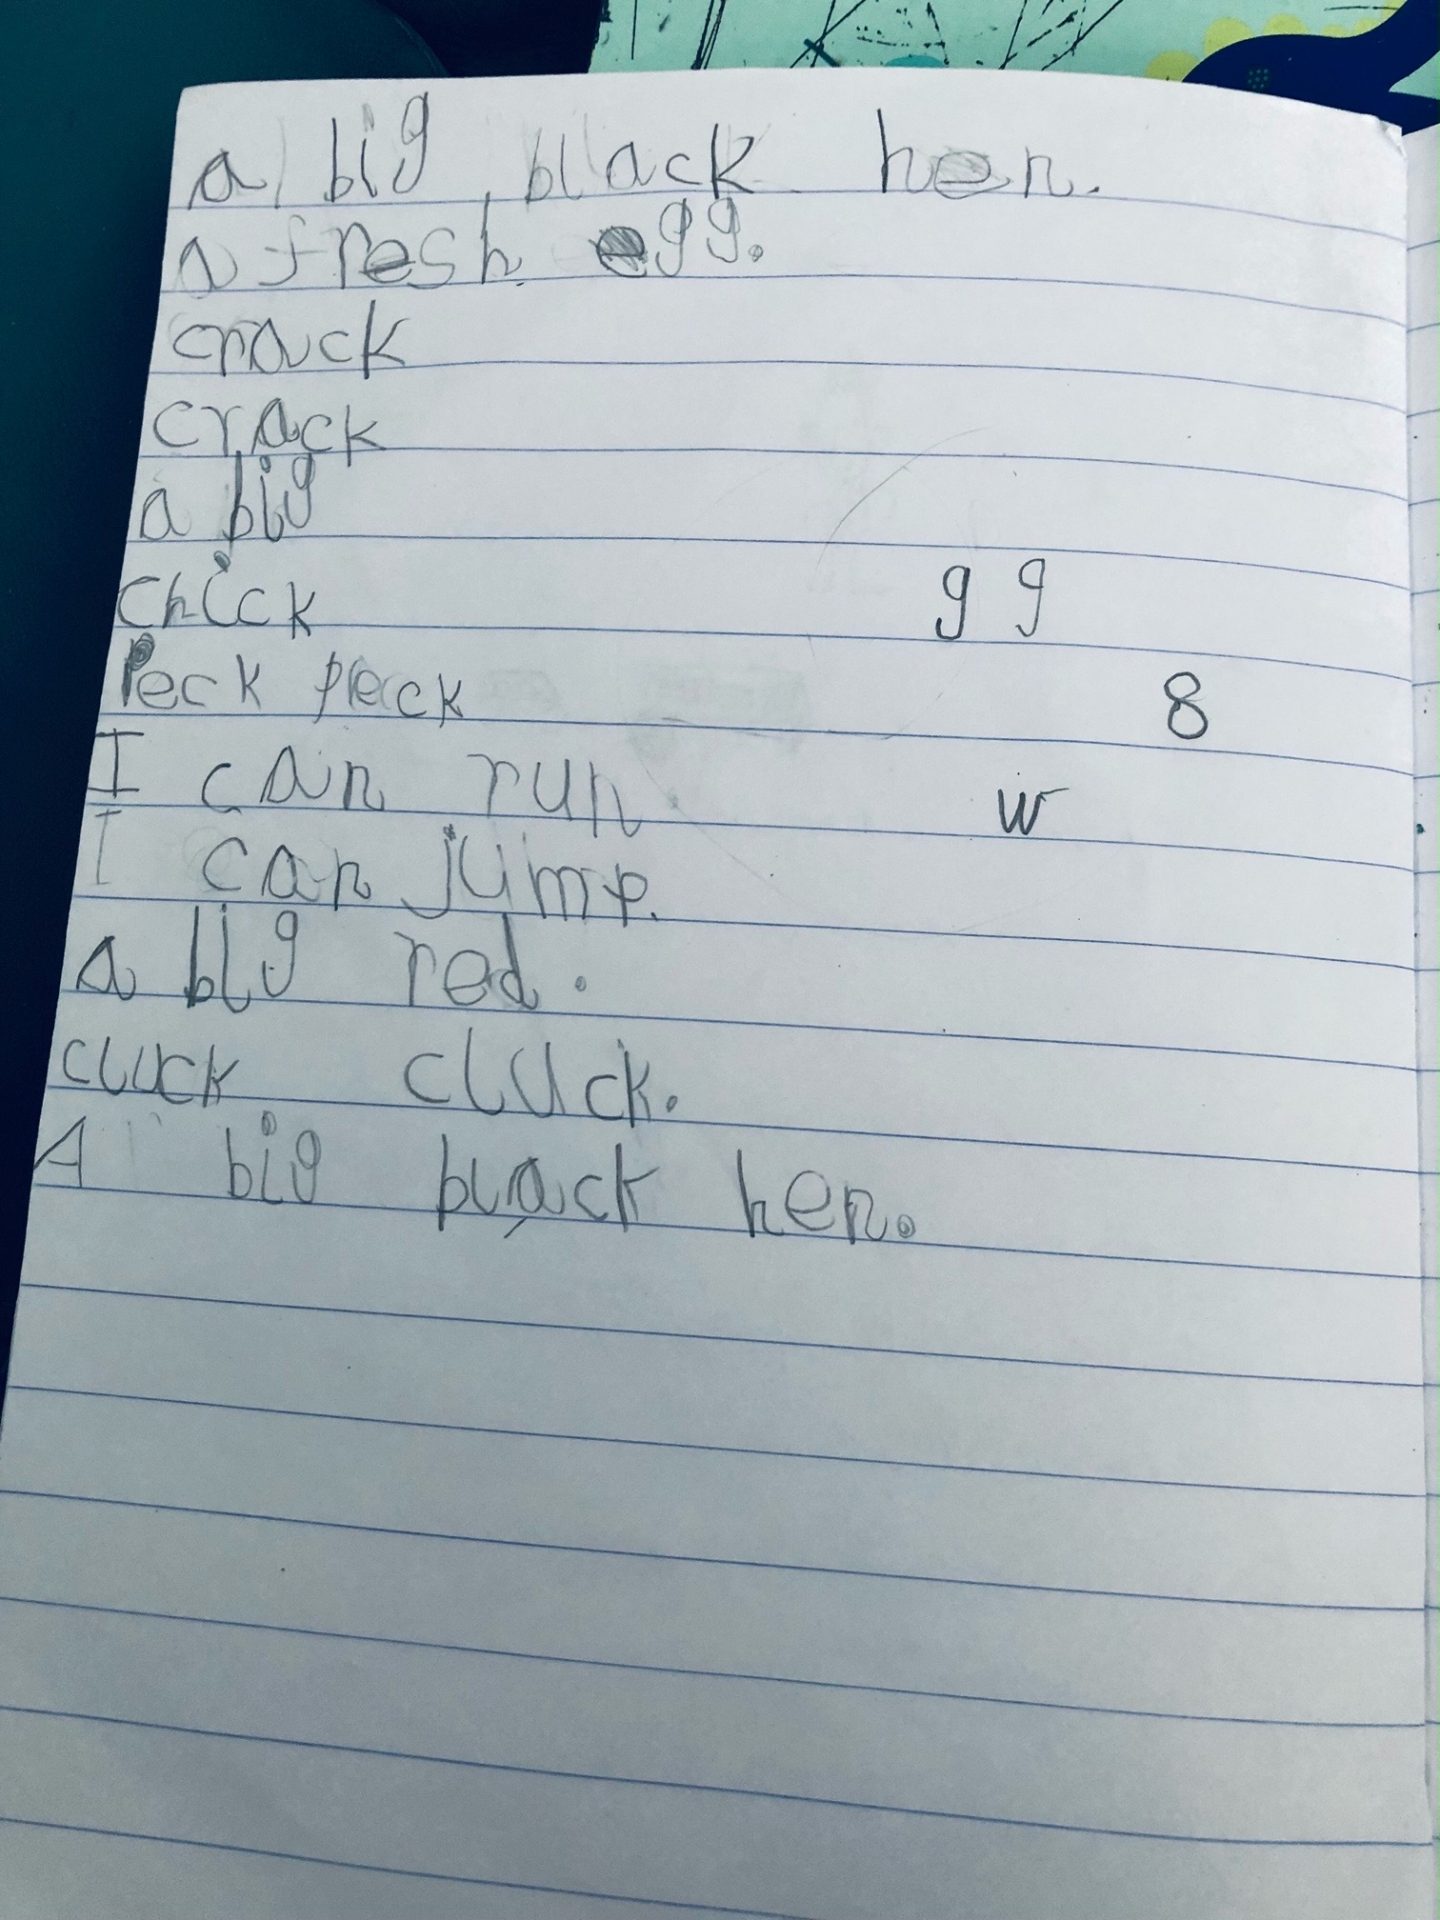 a big black hen.
a fresh egg.
crack
crack
a big
chick
g g
Peck peck
8
I can run
w
I can jump.
a big red.
cluck cluck.
A big black hen.